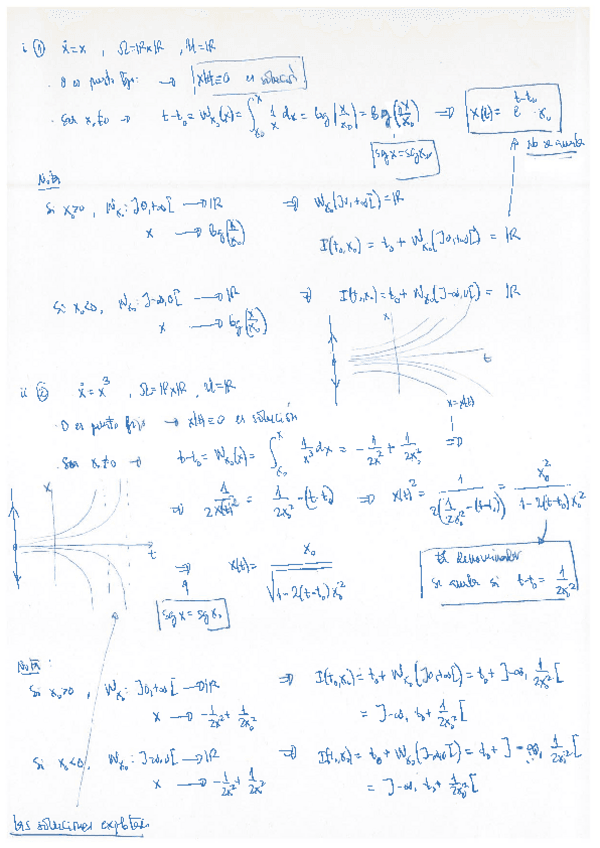 i ① ẋ=x , Ω=ℝxℝ , U=ℝ
· 0 es punto fijo → x(t)≡0 es solución
· Sea x₀≠0 → t-t₀ = W_{x₀}(x) = ∫_{x₀}^{x} 1/x dx = log|x/x₀| = log(x/x₀) ⇒ x(t) = e^{t-t₀} · x₀
sg x = sg x₀
No se anula
Nota
Si x₀>0 , W_{x₀}: ]0,+∞[ → ℝ ⇒ W_{x₀}(]0,+∞[) = ℝ
x → log(x/x₀)
I(t₀,x₀) = t₀ + W_{x₀}(]0,+∞[) = ℝ
Si x₀<0, W_{x₀}: ]-∞,0[ → ℝ ⇒ I(t₀,x₀) = t₀ + W_{x₀}(]-∞,0[) = ℝ
x → log(x/x₀)
x
t
ii ② ẋ = x³ , Ω=ℝxℝ , U=ℝ
· 0 es punto fijo → x(t)≡0 es solución
x=x(t)
· Sea x₀≠0 → t-t₀ = W_{x₀}(x) = ∫_{x₀}^{x} 1/x³ dx = -1/2x² + 1/2x₀² ⇒
x
t
⇒ 1/2x(t)² = 1/2x₀² - (t-t₀) ⇒ x(t)² = 1/2(1/2x₀² - (t-t₀)) = x₀²/1-2(t-t₀)x₀²
⇒ x(t) = x₀/√1-2(t-t₀)x₀²
sg x = sg x₀
el denominador
se anula si t-t₀ = 1/2x₀²
Nota:
Si x₀>0 , W_{x₀}: ]0,+∞[ → ℝ ⇒ I(t₀,x₀) = t₀ + W_{x₀}(]0,+∞[) = t₀ + ]-∞, 1/2x₀²[
x → -1/2x² + 1/2x₀²
= ]-∞, t₀ + 1/2x₀²[
Si x₀<0, W_{x₀}: ]-∞,0[ → ℝ ⇒ I(t₀,x₀) = t₀ + W_{x₀}(]-∞,0[) = t₀ + ]-∞, 1/2x₀²[
x → -1/2x² + 1/2x₀²
= ]-∞, t₀ + 1/2x₀²[
las soluciones explotan